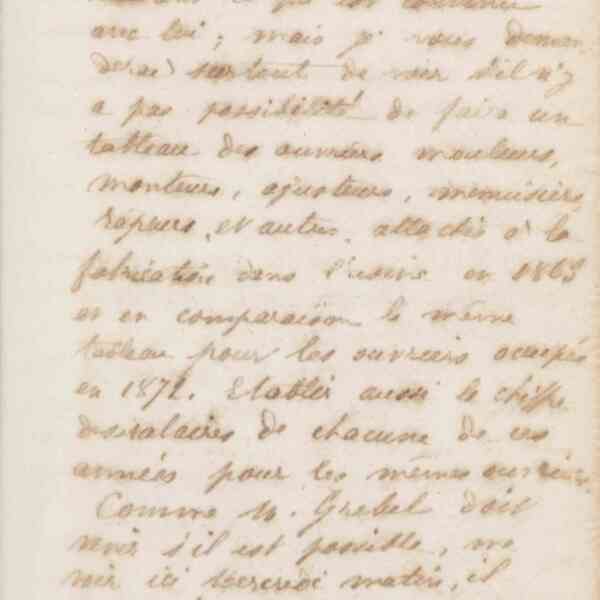 avec lui ; mais je vous deman
derai surtout de voir s'il n'y
a pas possibilité de faire un
tableau des ouvriers mouleurs,
monteurs, ajusteurs, menuisiers
rapeurs, et autres, attachés à la
fabrication dans l'usine en 1863
et en comparaison le même
tableau pour les ouvriers occupés
en 1872. Etablir aussi le chiffre
des salaires de chacune de ces
années pour les mêmes ouvriers.
Comme M. Grebel doit
venir s'il est possible, me
voir ici Mercredi matin, il